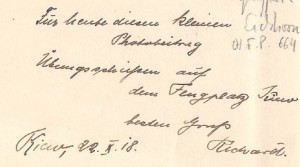 Für heute diesen kleinen
Photobeitrag
Übungsschießen auf
dem Flugplatz Kiew
besten Gruß
Kiew, 22. X. 18.
01 F.P. 664